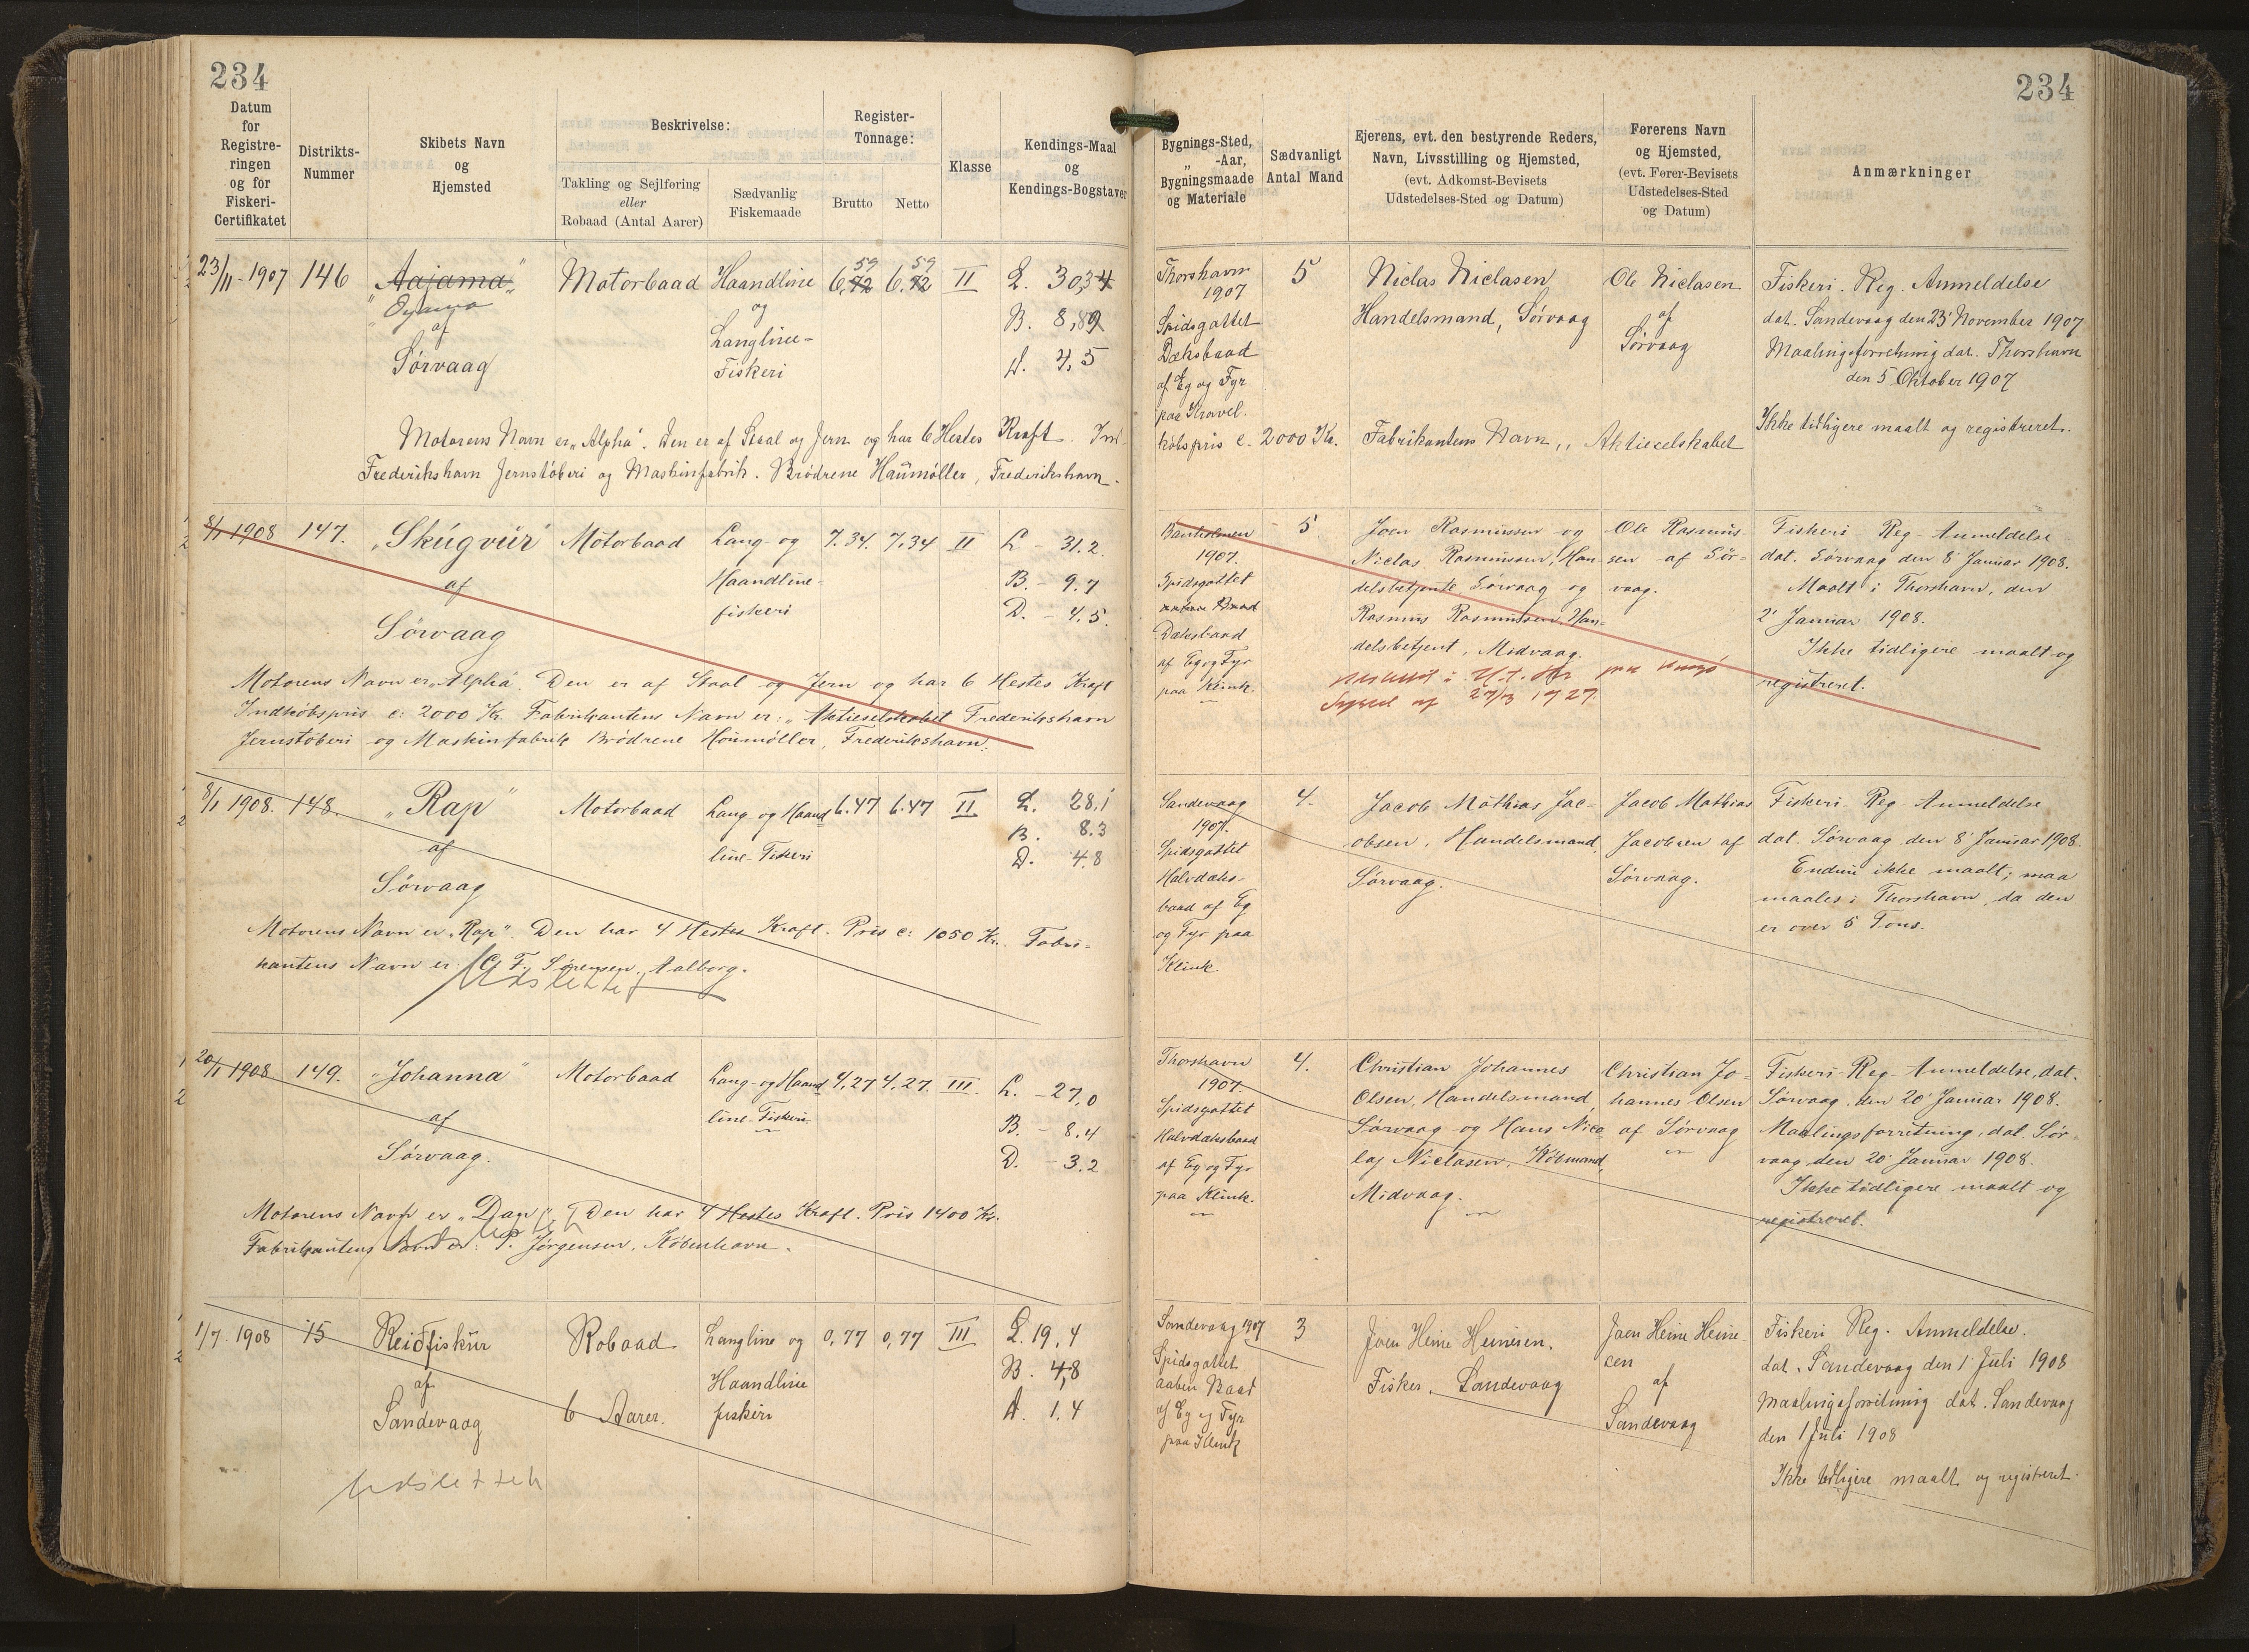 234
234
Datum for Registreringen og for Fiskeri-Certifikatet
Distrikts-Nummer
Skibets Navn og Hjemsted
Beskrivelse:
Takling og Sejlføring eller Robaad (Antal Aarer)
Sædvanlig Fiskemaade
Register-Tonnage:
Brutto
Netto
Klasse
Kendings-Maal og Kendings-Bogstaver
Bygnings-Sted, „ -Aar, Bygningsmaade og Materiale
Sædvanligt Antal Mand
Ejerens, evt. den bestyrende Reders, Navn, Livsstilling og Hjemsted, (evt. Adkomst-Bevisets Udstedelses-Sted og Datum)
Førerens Navn og Hjemsted, (evt. Fører-Bevisets Udstedelses-Sted og Datum)
Anmærkninger
23/11-1907
146
"Aajama"
af
Sørvaag
Motorbaad
Haandline
og
Langline-
Fiskeri
6,72 59
6.72 59
II
L. 30,34
B. 8,89
D. 4,5
Thorshavn
1907
Spidsgattet
Dæksbaad
af Eg og Fyr
paa Kravel.
5
Niclas Niclasen
Handelsmand, Sørvaag
Ole Niclasen
af
Sørvaag
Fiskeri. Reg. Anmeldelse
dat. Sandevaag den 23' November 1907
Maalingsforretning dat. Thorshavn
den 5 Oktober 1907
Ikke tidligere maalt og registreret.
Motorens Navn er „Alpha". Den er af Staal og Jern og har 6 Hestes Kraft. Ind-
købspris c. 2000 Kr. Fabrikantens Navn „ Aktieselskabet
Frederikshavn Jernstøberi og Maskinfabrik. Brødrene Houmøller, Frederikshavn.
8/1 1908
147.
„Skúgvúr"
af
Sørvaag
Motorbaad
Lang- og
Haandline-
fiskeri
7.34.
7,34
II
L - 31.2.
B. - 9.7
D. - 4,5.
1907.
Spidsgattet
Dæksbaad
af Eg og Fyr
paa Klink.
5
Joen Rasmussen og
Niclas Rasmussen, Han-
delsbetjente Sørvaag og
Rasmus Rasmussen, Han-
delsbetjent, Midvaag.
Ole Rasmus-
sen af Sør-
vaag.
Fiskeri-Reg-Anmeldelse
dat. Sørvaag den 8' Januar 1908.
Maalt i Thorshavn, den
2' Januar 1908.
Ikke tidligere maalt og
registreret.
27/3 1927.
Motorens Navn er „Alpha". Den er af Staal og Jern og har 6 Hestes Kraft
Indkøbspris c: 2000 Kr. Fabrikantens Navn er: „Aktieselskabet Frederikshavn
Jernstøberi og Maskinfabrik Brødrene Houmøller, Frederikshavn.
8/1 1908.
148.
„Rap"
af
Sørvaag
Motorbaad
Lang- og Haand
line-Fiskeri
6.47
6.47
II
L. 28,1
B. 8.3
D. 4.8
Sandevaag
1907.
Spidsgattet
Halvdæks-
baad af Eg
og Fyr paa
Klink.
4.
Jacob Mathias Jac-
obsen, Handelsmand,
Sørvaag.
Jacob Mathias
Jacobsen af
Sørvaag.
Fiskeri-Reg-Anmeldelse
dat. Sørvaag den 8' Januar 1908.
Endnu ikke maalt; maa
maales i Thorshavn, da den
er over 5 Tons.
Motorens Navn er „Rap". Den har 4 Hestes Kraft. Pris c: 1050 Kr. Fabri-
kantens Navn er: G. F. Sørensen, Aalborg.
Udslettet
20/1 1908
149.
„Johanna"
af
Sørvaag.
Motorbaad
Lang- og Haand
line-Fiskeri
4,27
4.27.
III.
L. - 27,0
B. - 8.4
D. - 3.2
Thorshavn
1907
Spidsgattet
Halvdæksbaad
af Eg og Fyr
paa Klink.
4.
Christian Johannes
Olsen, Handelsmand,
Sørvaag og Hans Nico-
laj Niclasen, Købmand,
Midvaag.
Christian Jo-
hannes Olsen
af Sørvaag
Fiskeri-Reg-Anmeldelse, dat.
Sørvaag, den 20' Januar 1908.
Maalingsforretning, dat. Sør-
vaag, den 20' Januar 1908.
Ikke tidligere maalt og
registreret.
Motorens Navn er „Dan". Den har 4 Hestes Kraft. Pris 1400 Kr.
Fabrikantens Navn er: P. Jørgensen, København.
1/7 1908
15
Reiðfiskur
af
Sandevaag
Robaad
6 Aarer.
Langline og
Haandline
fiskeri
0,77
0,77
III
L. 19,4
B. 4,8
D. 1,4
Sandevaag 1907
Spidsgattet
aaben Baad
af Eg og Fyr
paa Klink
3
Joen Heine Heinesen,
Fisker, Sandevaag
Joen Heine Heine
sen
af
Sandevaag
Fiskeri Reg. Anmeldelse.
dat. Sandevaag den 1' Juli 1908
Maalingsforretning dat. Sandevaag
den 1 Juli 1908
Ikke tidligere maalt og registreret.
Udslettet